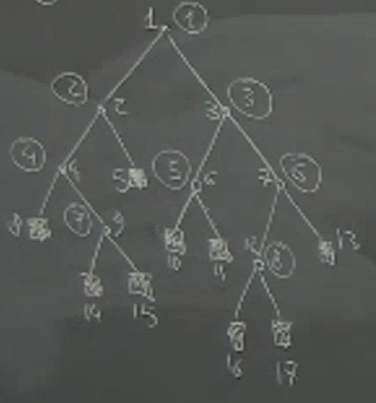 1 ①
② 2 3 ③
④ 4 5 ⑤ 6 7 ⑥
8 ⑦ 9 10 11 12 ⑧ 13
14 15
16 17